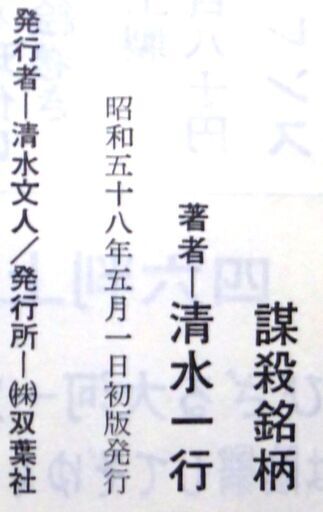 謀殺銘柄
著者ー清水一行
昭和五十八年五月一日初版発行
発行者ー清水文人／発行所ー㈱双葉社